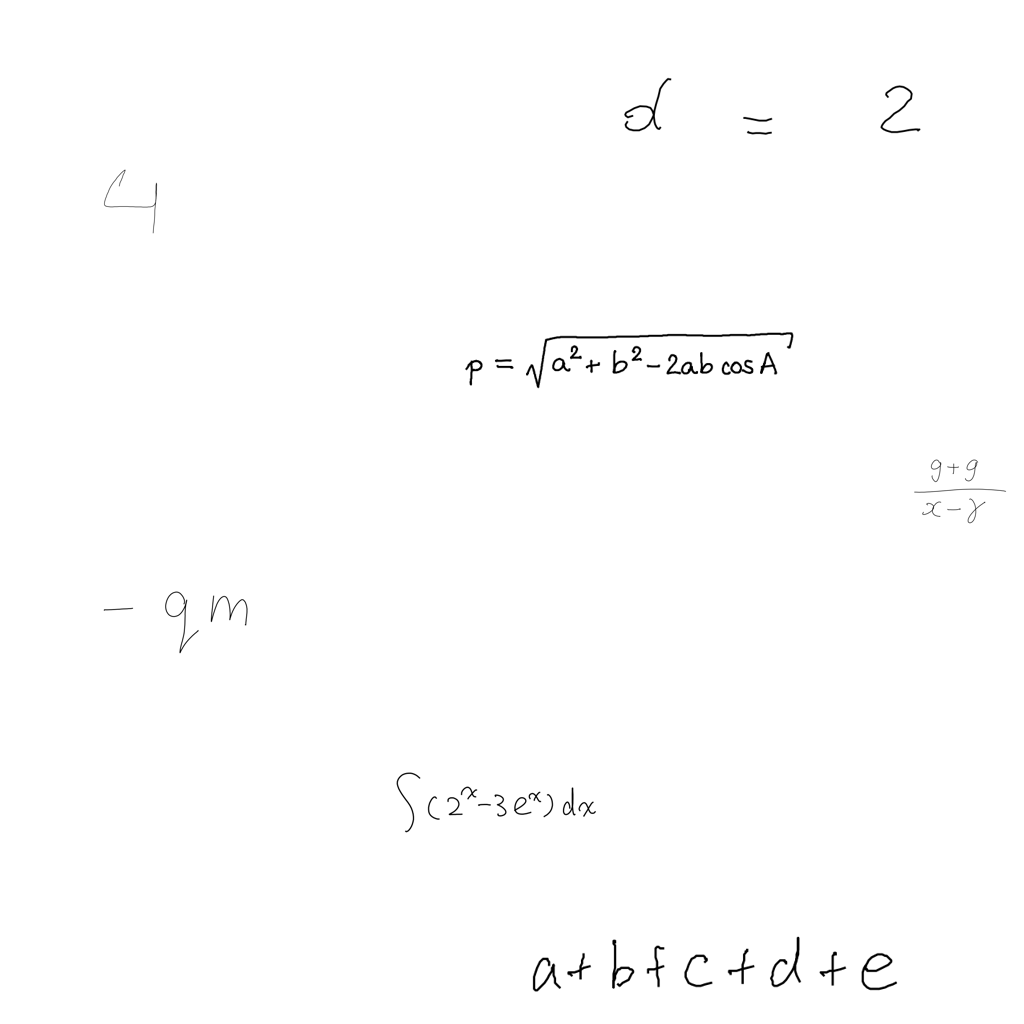 d = 2
4
p = √(a² + b² - 2ab cos A)
(g+g)/(x-γ)
- qm
∫(2ˣ-3eˣ)dx
a+b+c+d+e